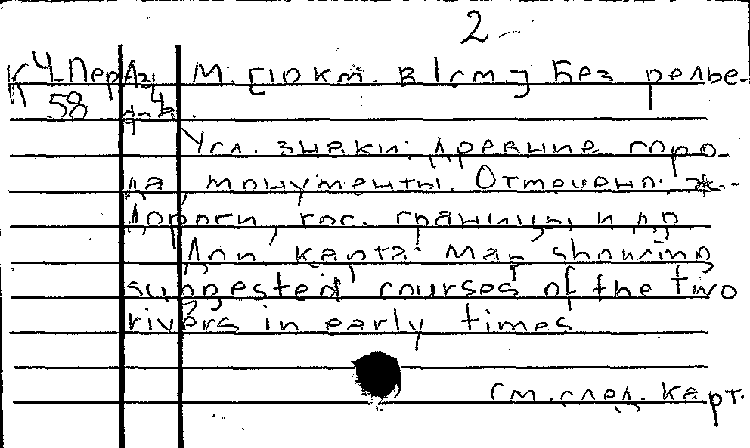 2-
К 4-Пер Аз М. [10 км. в 1 см.] Без релье-
58 ф-а
Усл. знаки: древние горо-
да, монументы. Отмечено: ж.-
дороги, гос. границы и др.
Доп. карта: Map showing
suggested courses of the two
rivers in early times
см. след. карт.